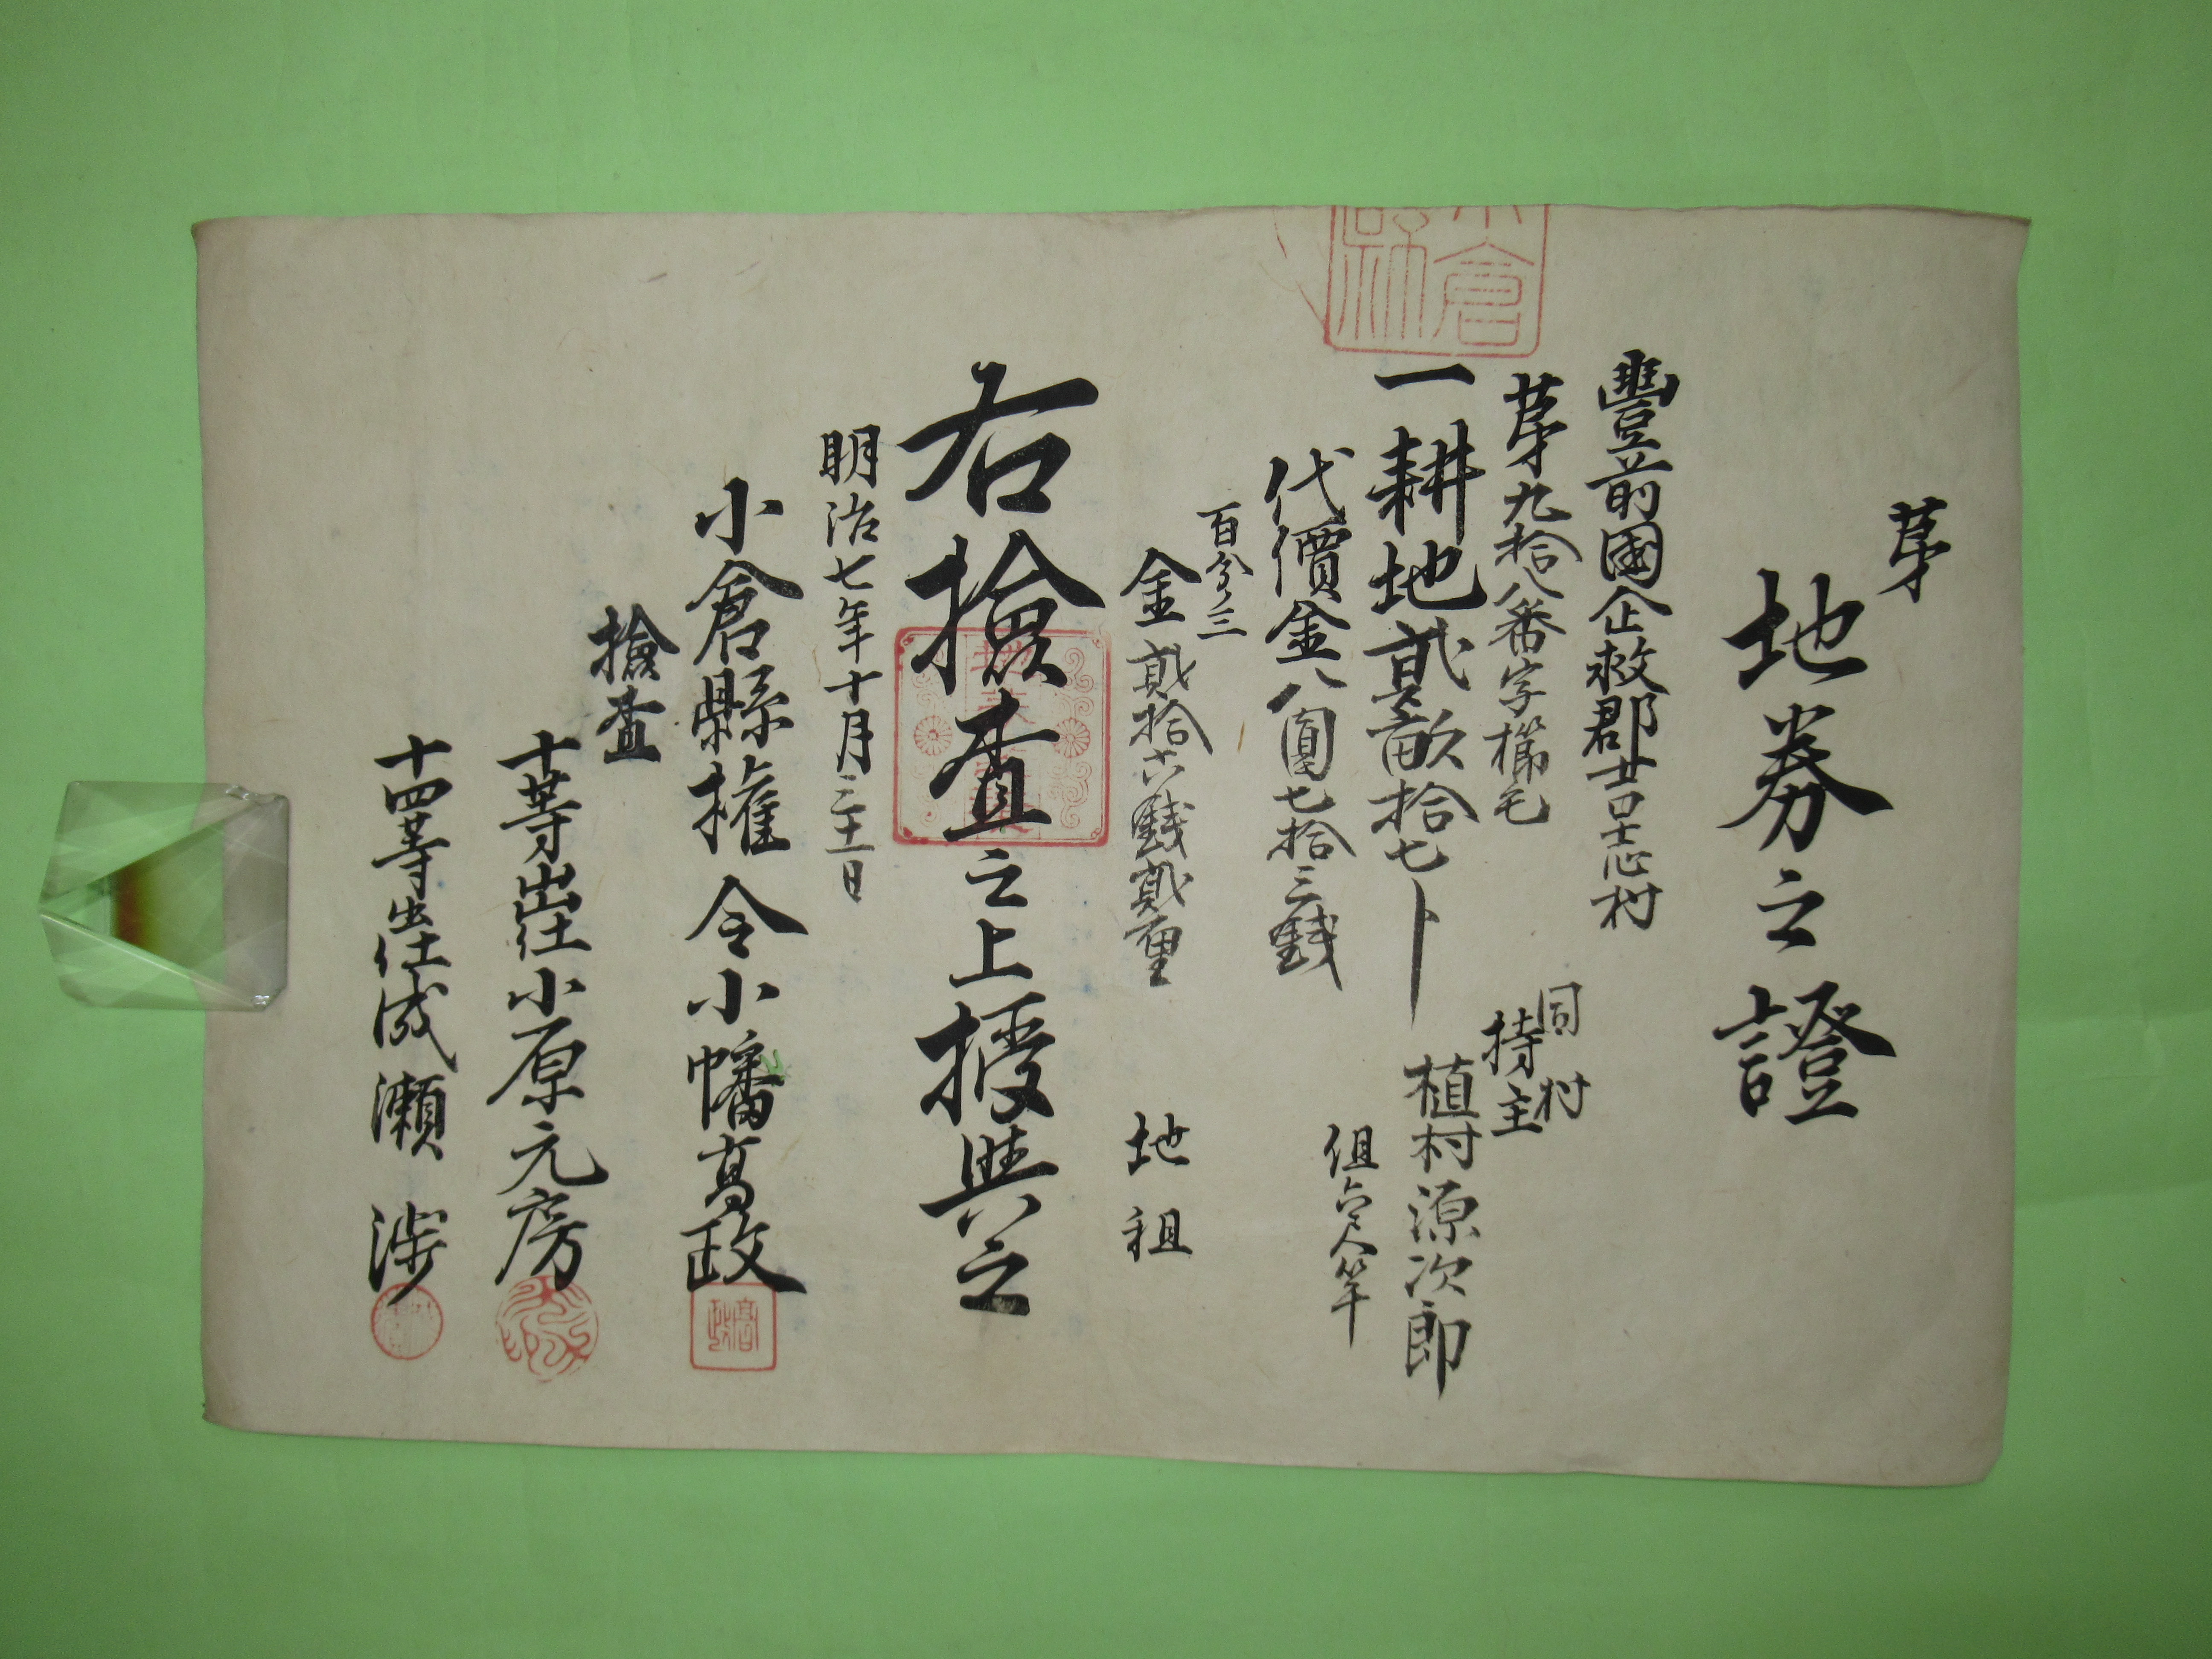 第
地券之證
豐前國企救郡吉志村
第九拾八番字櫛毛
同村
持主
一耕地貳畝拾七卜
植村源次郎
但六尺竿
代價金八圓七拾三錢
百分ノ三
金貳拾六錢貳厘
地租
右撿査之上授與之
明治七年十月三十一日
小倉縣權令小幡高政
撿査
十等出仕小原元房
十四等出仕成瀬渉